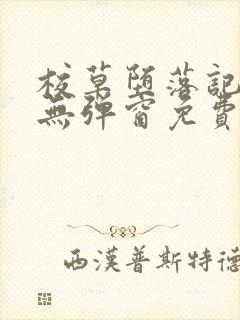 校草堕落記
無彈窗免費
西漢普斯特德